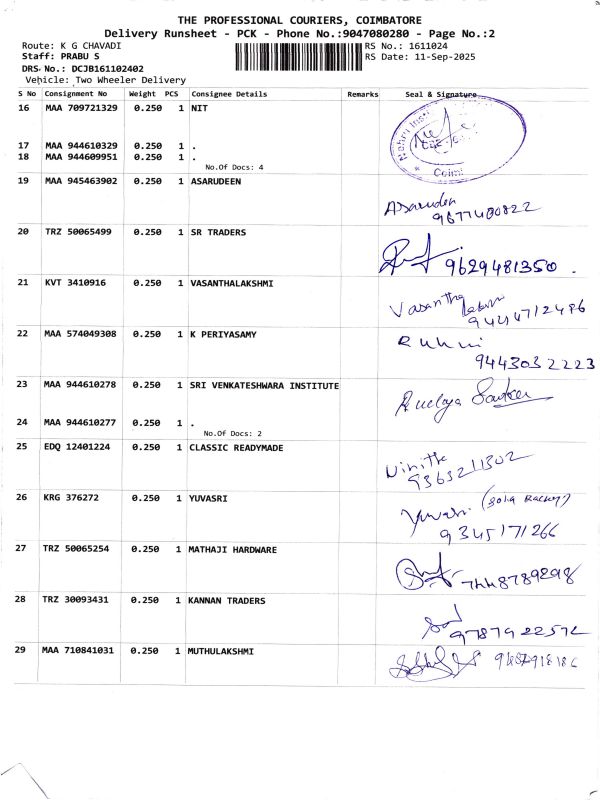 THE PROFESSIONAL COURIERS, COIMBATORE
Delivery Runsheet - PCK - Phone No.:9047080280 - Page No.:2
Route: K G CHAVADI
RS No.: 1611024
Staff: PRABU S
RS Date: 11-Sep-2025
DRS No.: DCJB161102402
Vehicle: Two Wheeler Delivery
S No Consignment No Weight PCS Consignee Details Remarks Seal & Signature
16 MAA 709721329 0.250 1 NIT
Coim
17 MAA 944610329 0.250 1 .
18 MAA 944609951 0.250 1 .
No.Of Docs: 4
19 MAA 945463902 0.250 1 ASARUDEEN
Asaruden
9677400822
20 TRZ 50065499 0.250 1 SR TRADERS
9629481350 .
21 KVT 3410916 0.250 1 VASANTHALAKSHMI
Vasantha
22 MAA 574049308 0.250 1 K PERIYASAMY
9443032223
23 MAA 944610278 0.250 1 SRI VENKATESHWARA INSTITUTE
24 MAA 944610277 0.250 1 .
No.Of Docs: 2
25 EDQ 12401224 0.250 1 CLASSIC READYMADE
9363211302
26 KRG 376272 0.250 1 YUVASRI
Yuvasri
9345171266
27 TRZ 50065254 0.250 1 MATHAJI HARDWARE
7448789298
28 TRZ 30093431 0.250 1 KANNAN TRADERS
9787922572
29 MAA 710841031 0.250 1 MUTHULAKSHMI